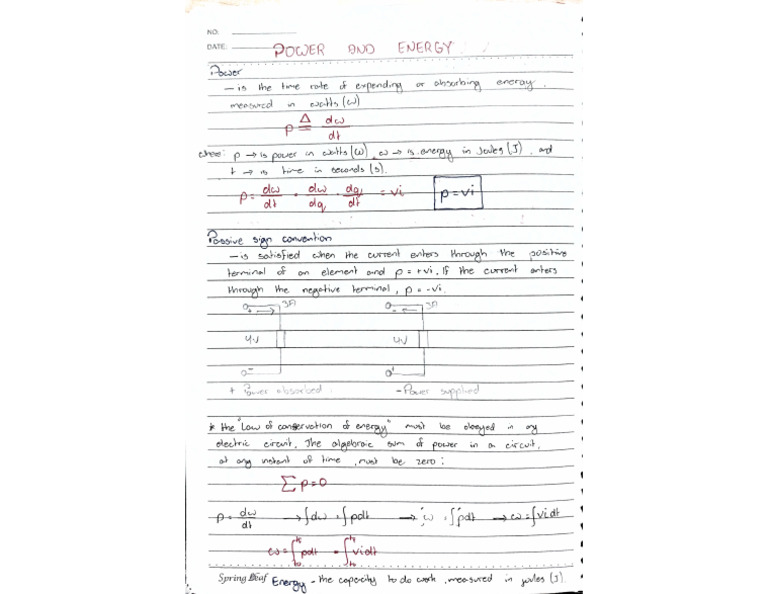 NO:
DATE:
POWER AND ENERGY
Power
– is the time rate of expending or absorbing energy,
measured in watts (W)
p ≜ dw/dt
where: p → is power in watts (W), w → is energy in joules (J), and
t → is time in seconds (s).
p = dw/dt = dw/dq · dq/dt = vi p = vi
Passive sign convention
– is satisfied when the current enters through the positive
terminal of an element and p = +vi. If the current enters
through the negative terminal, p = -vi.
3A 3A
4V 4V
+ Power absorbed - Power supplied
* the "Law of conservation of energy" must be obeyed in any
electric circuit. The algebraic sum of power in a circuit,
at any instant of time, must be zero:
∑p=0
p = dw/dt → ∫dw = ∫pdt → w = ∫pdt → w = ∫vidt
w = ∫pdt = ∫vidt
Spring Leaf Energy - the capacity to do work, measured in joules (J).